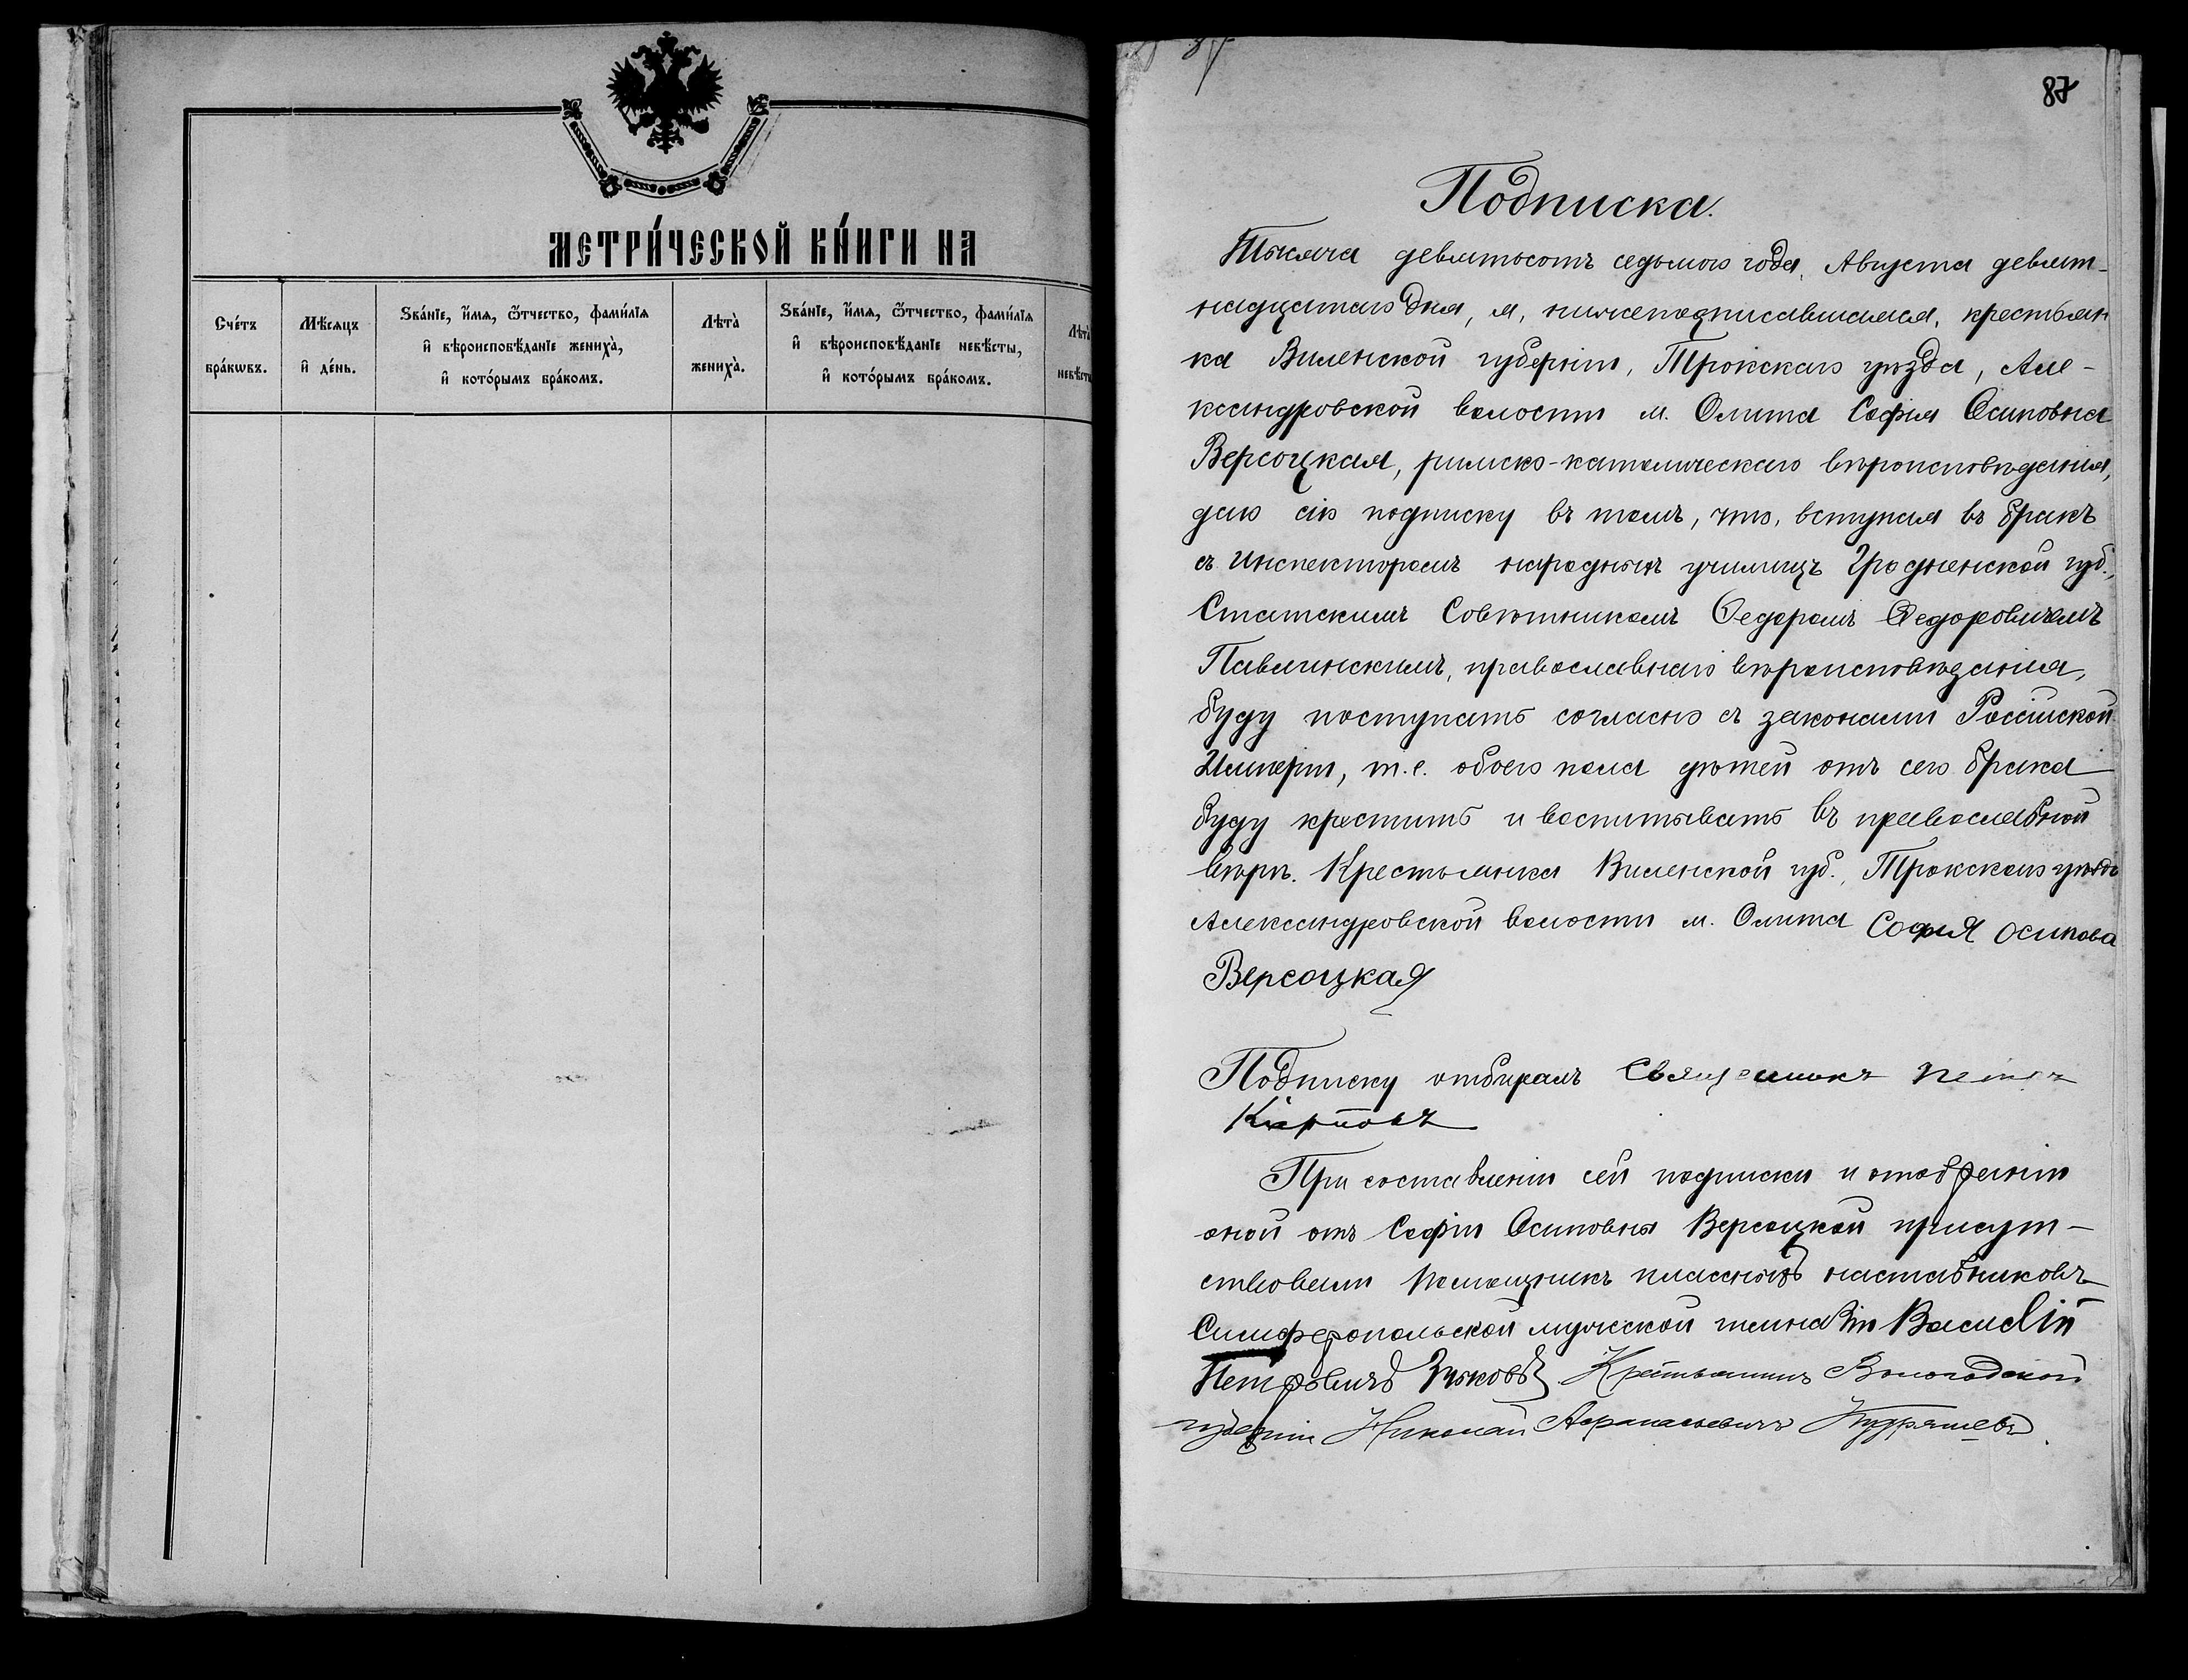 МЕТРИ́ЧЕСКОЙ КНИ́ГИ НА
Сче́тъ
бра́кѡвъ.
Мѣсяцъ
и҆ де́нь.
Ѕва́нїе, и҆́мѧ, ѻ҆́тчество, фами́лїѧ
и҆ вѣроисповѣ́данїе жениха̀,
и҆ кото́рымъ бра́комъ.
Лѣта̀
жениха̀.
Ѕва́нїе, и҆́мѧ, ѻ҆́тчество, фами́лїѧ
и҆ вѣроисповѣ́данїе невѣ́сты,
и҆ кото́рымъ бра́комъ.
Лѣта̀
невѣ́сты
87
Подписка.
Тысяча девятьсотъ седьмого года, Августа девят-
надцатаго дня, я, нижеподписавшаяся, крестьян
ка Виленской губерніи, Трокскаго уѣзда, Але-
ксандровской волости м. Олита Софія Осиповна
Версоцкая, римско-католическаго вѣроисповѣданія,
даю сію подписку въ томъ, что, вступая въ бракъ
съ Инспекторомъ народныхъ училищъ Гродненской губ.,
Статскимъ Совѣтникомъ Ѳедоромъ Ѳедоровичемъ
Павлинскимъ, православнаго вѣроисповѣданія,
буду поступать согласно съ законами Россійской
Имперіи, т.е. обоего пола дѣтей отъ сего брака
буду крестить и воспитывать въ православной
вѣрѣ. Крестьянка Виленской губ., Трокскаго уѣзда
Александровской волости м. Олита София Осипова
Версоцкая
Подписку отбиралъ Священникъ Петръ
Карповъ
При составленіи сей подписки и отобраніи
оной отъ Софіи Осиповны Версоцкой присут-
ствовали Помощникъ классныхъ наставниковъ
Симферопольской мужской гимназіи Василій
Петровичъ Зыковъ Крестьянинъ Вологодской
губерніи Николай Афанасьевичъ Кудряшевъ.